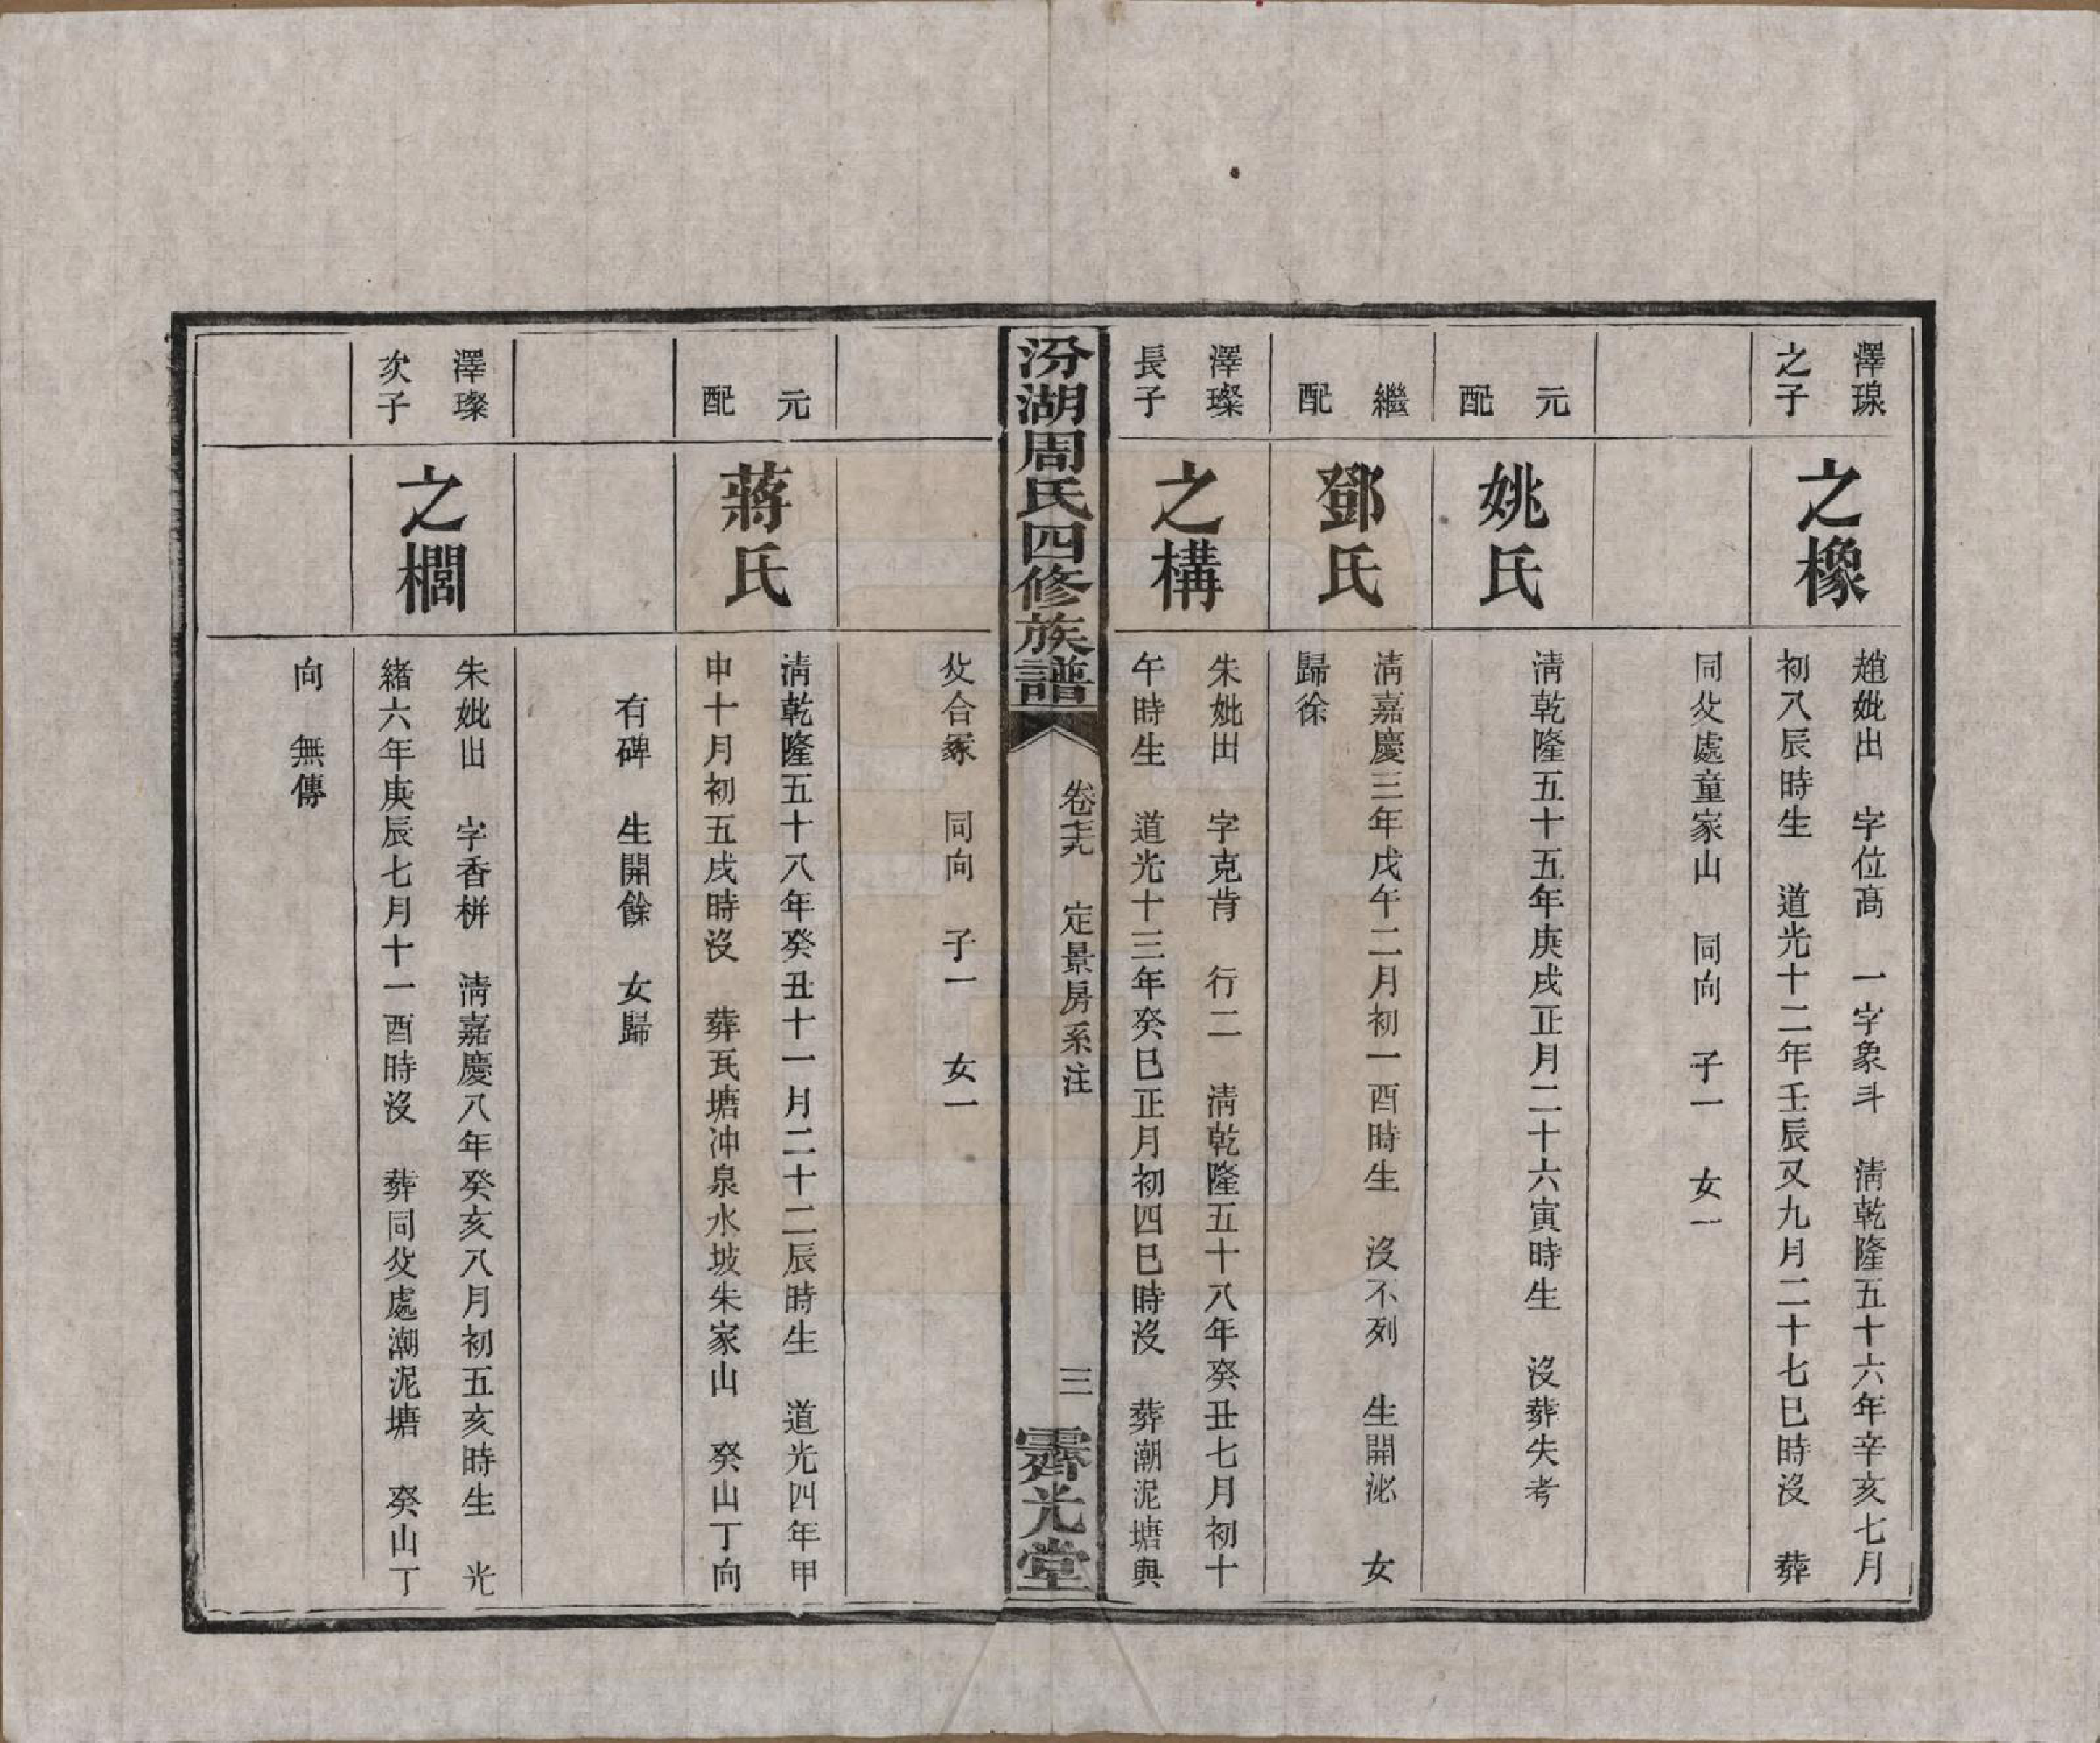 澤璟
之子
之橡
趙妣出　字位高　一字象斗　淸乾隆五十六年辛亥七月
初八辰時生　道光十二年壬辰又九月二十七巳時沒　葬
同父處童家山　同向　子一　女一
元
配
姚氏
淸乾隆五十五年庚戌正月二十六寅時生　沒葬失考
繼
配
鄧氏
淸嘉慶三年戊午二月初一酉時生　沒不列　生開泌　女
歸徐
澤璨
長子
之構
朱妣出　字克肯　行二　淸乾隆五十八年癸丑七月初十
午時生　道光十三年癸巳正月初四巳時沒　葬潮泥塘與
汾湖周氏四修族譜
卷七十九　定景房系注
三
霽光堂
父合冢　同向　子一　女一
元
配
蔣氏
淸乾隆五十八年癸丑十一月二十二辰時生　道光四年甲
申十月初五戌時沒　葬瓦塘冲泉水坡朱家山　癸山丁向
有碑　生開餘　女歸
澤璨
次子
之櫩
朱妣出　字香栟　淸嘉慶八年癸亥八月初五亥時生　光
緒六年庚辰七月十一酉時沒　葬同父處潮泥塘　癸山丁
向　無傳